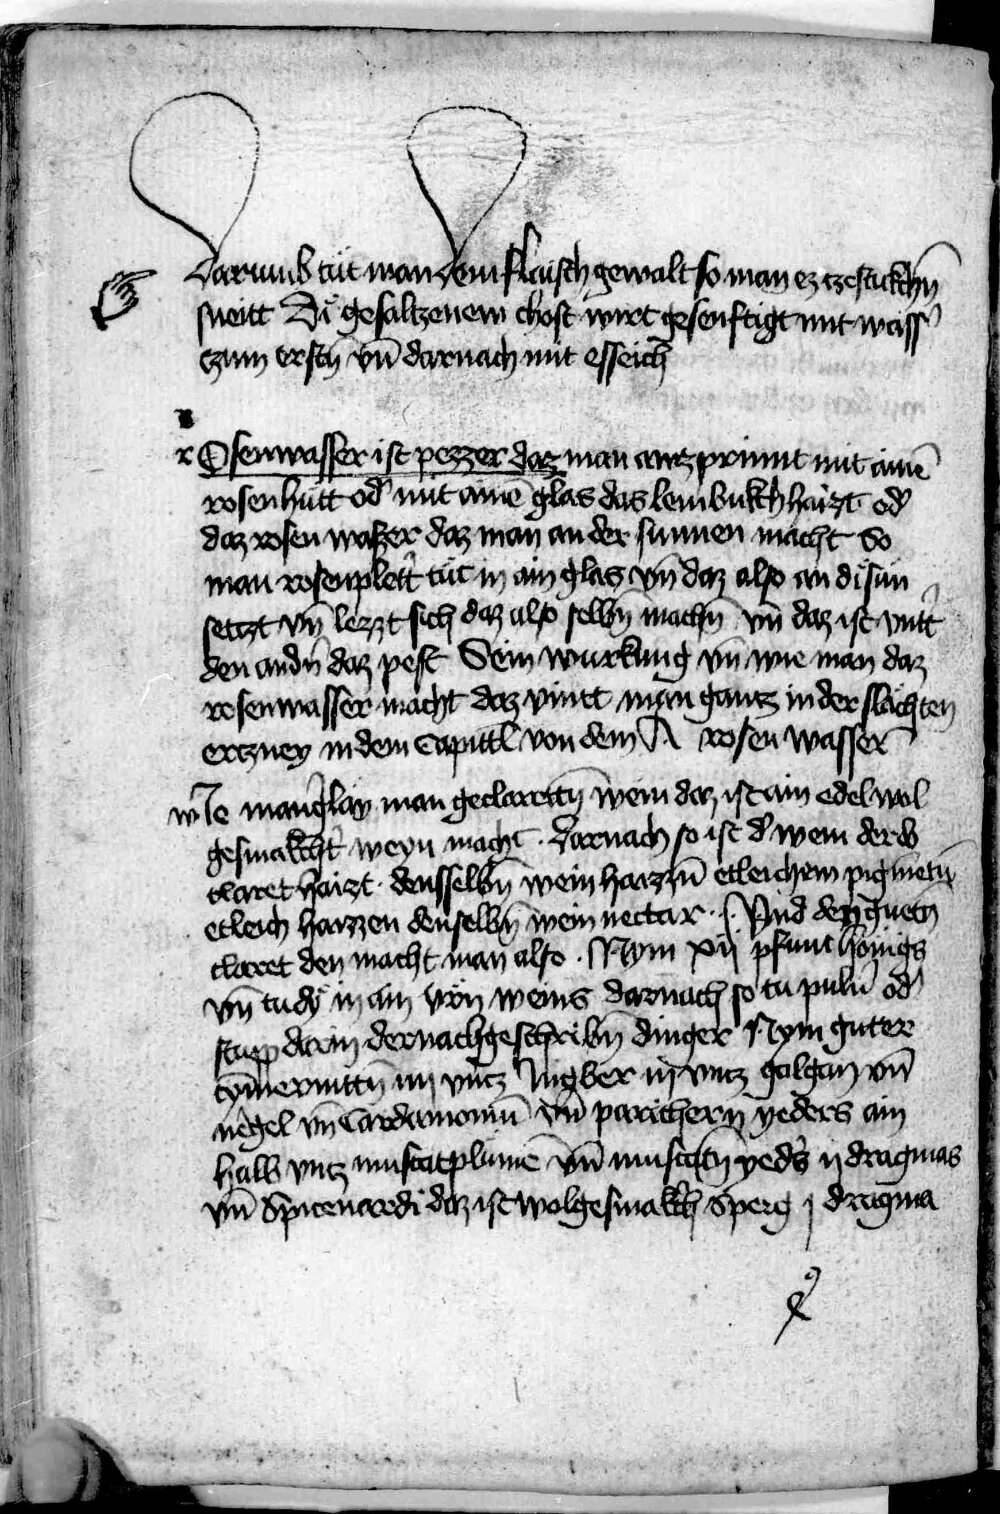 Darumb tut man dem flaisch gewalt so man ez tze stukchn̄
sneitt Di gesaltzenew chost wirt gesenftigt mit wass̄
tzum erstn̄ vn̄ darnach mit esseich
r Osenwasser ist pezzer daz man auz prinnt mit aimē
rosenhutt od̄ mit aimē glas das lembukch haizt od̄
daz rosen wazzer daz man an der sunnen macht So
man rosenplett̄ tut in ain glas vn̄ daz also an di sun
setzt vn̄ lezzt sich daz also selbn̄ machn̄ vn̄ daz ist vnt̄
den andn̄ daz pest Sein wurkung vn̄ wie man daz
rosenwasser macht daz vintt man gantz in der slächten
ertzney in dem Capittl von dem A rosen wasser
wIe manḡlay man geclarettn̄ wein daz ist ain edel wol
gesmakcht̄ weyn macht · Darnach so ist d̄ wein der do
claret haizt · denselbn̄ wein haizzn̄ etleichew pigmētn̄
etleich haizzen denselbn̄ wein nectar · Vnd den guetn̄
claret den macht man also · Nym xij pfunt honigs
vn̄ tu dy in ain vrn weins darnach so tu pulū od̄
stupp darin der nachgeschribn̄ dinger Nym guter
cymermittn̄ iiij vncz Jngber iij vncz galgan vn̄
negel vn̄ Cardamomū vn̄ parichern̄ yeders ain
halb vntz muscatplumē vn̄ muscatn̄ yeds̄ ij dragmas
vn̄ Spicenardi daz ist wolgesmakch̄ sperg j dragma